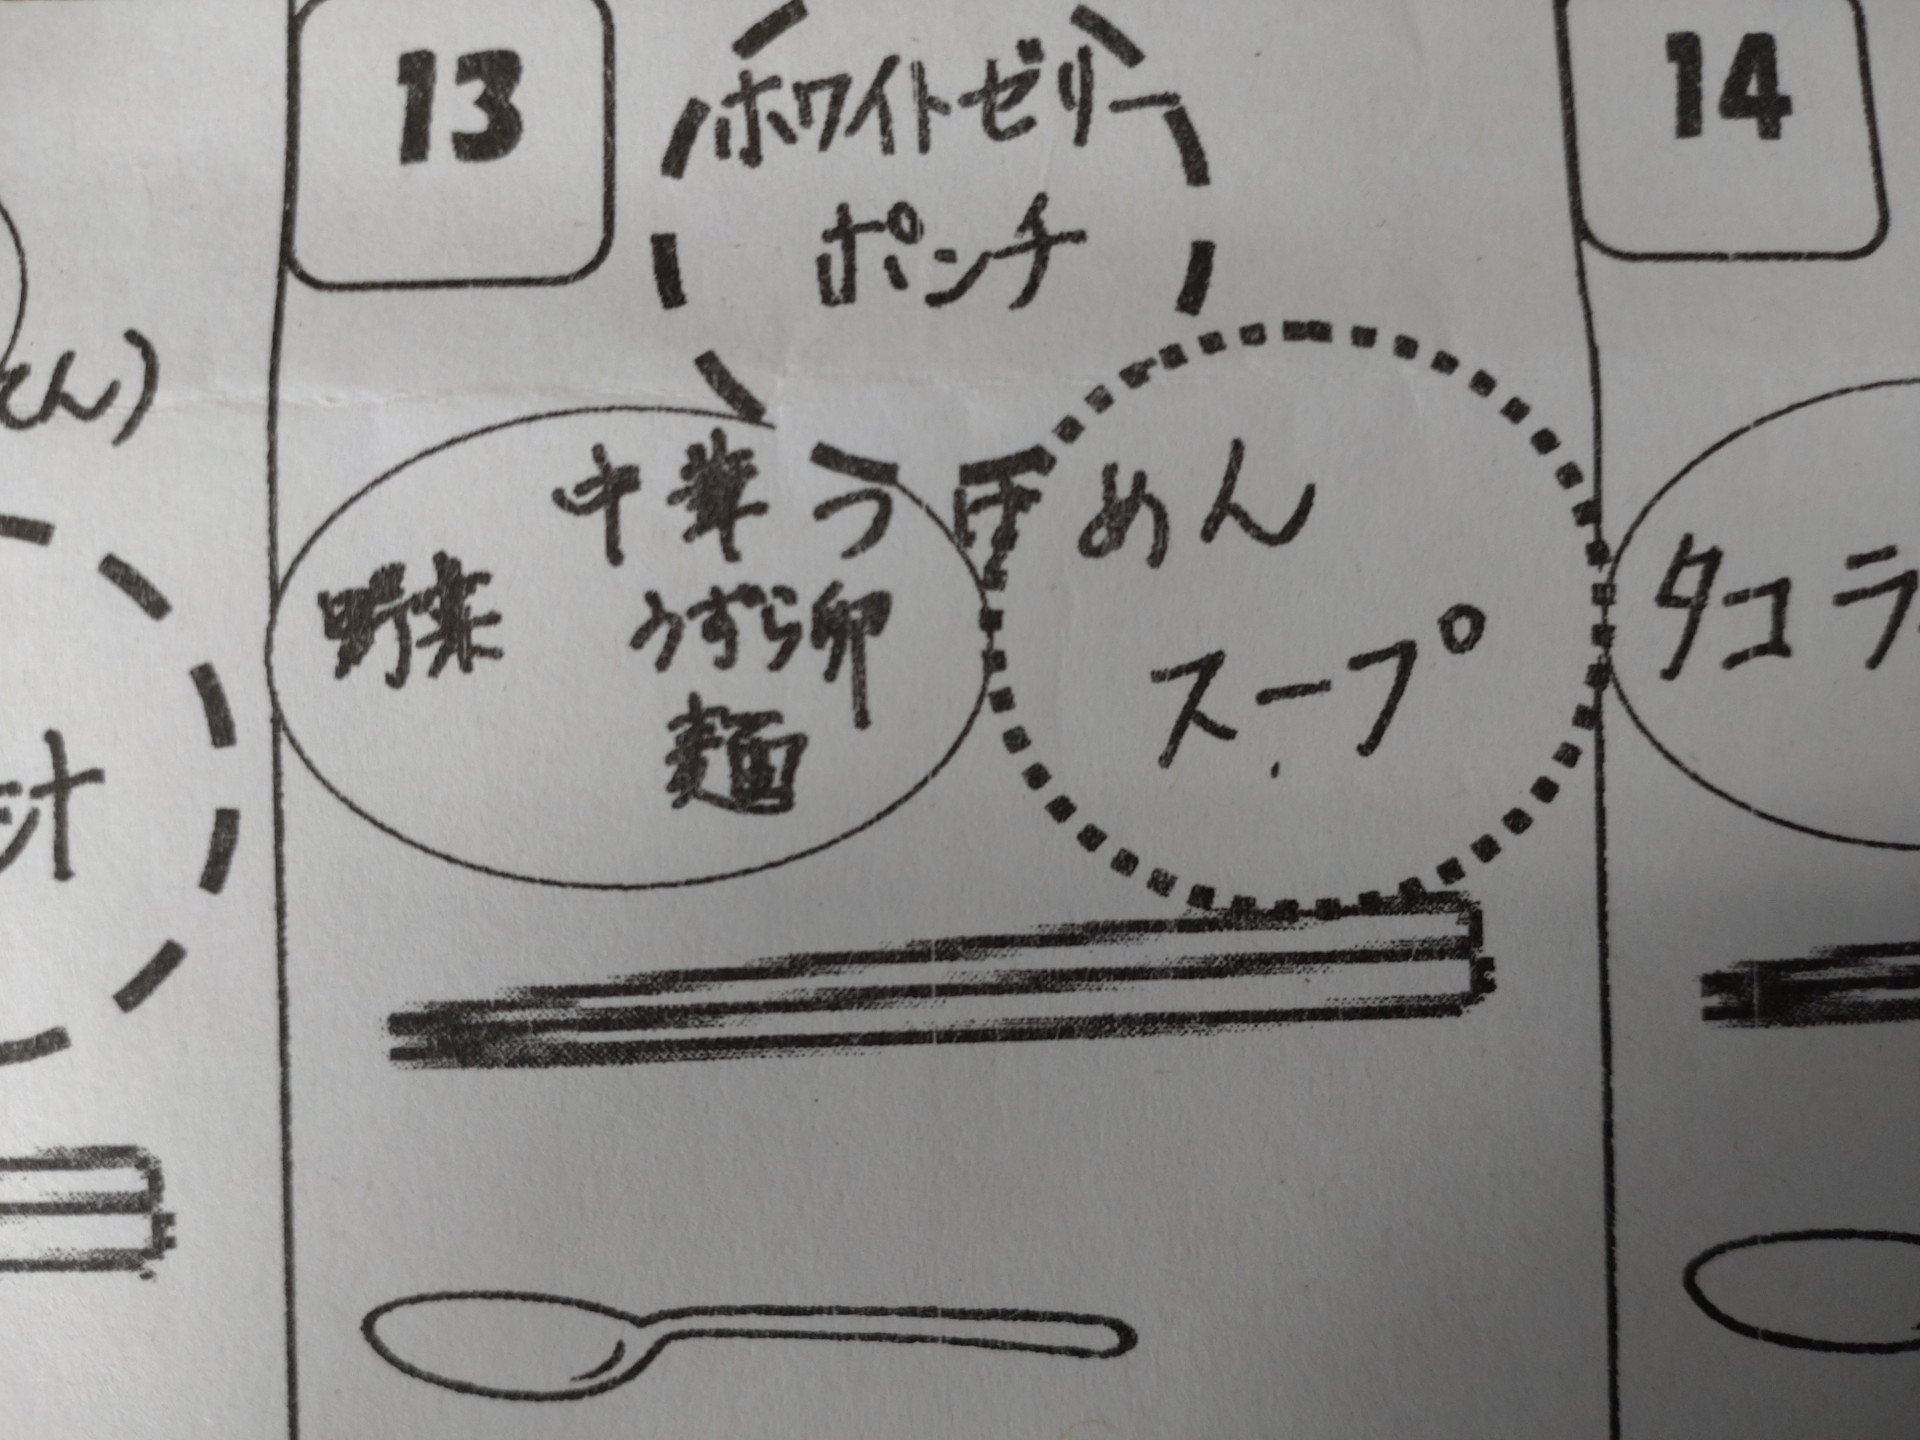 13
ホワイトゼリー
ポンチ
14
てん)
中華つけめん
野菜
うずら卵
麺
スープ
タコラ
汁